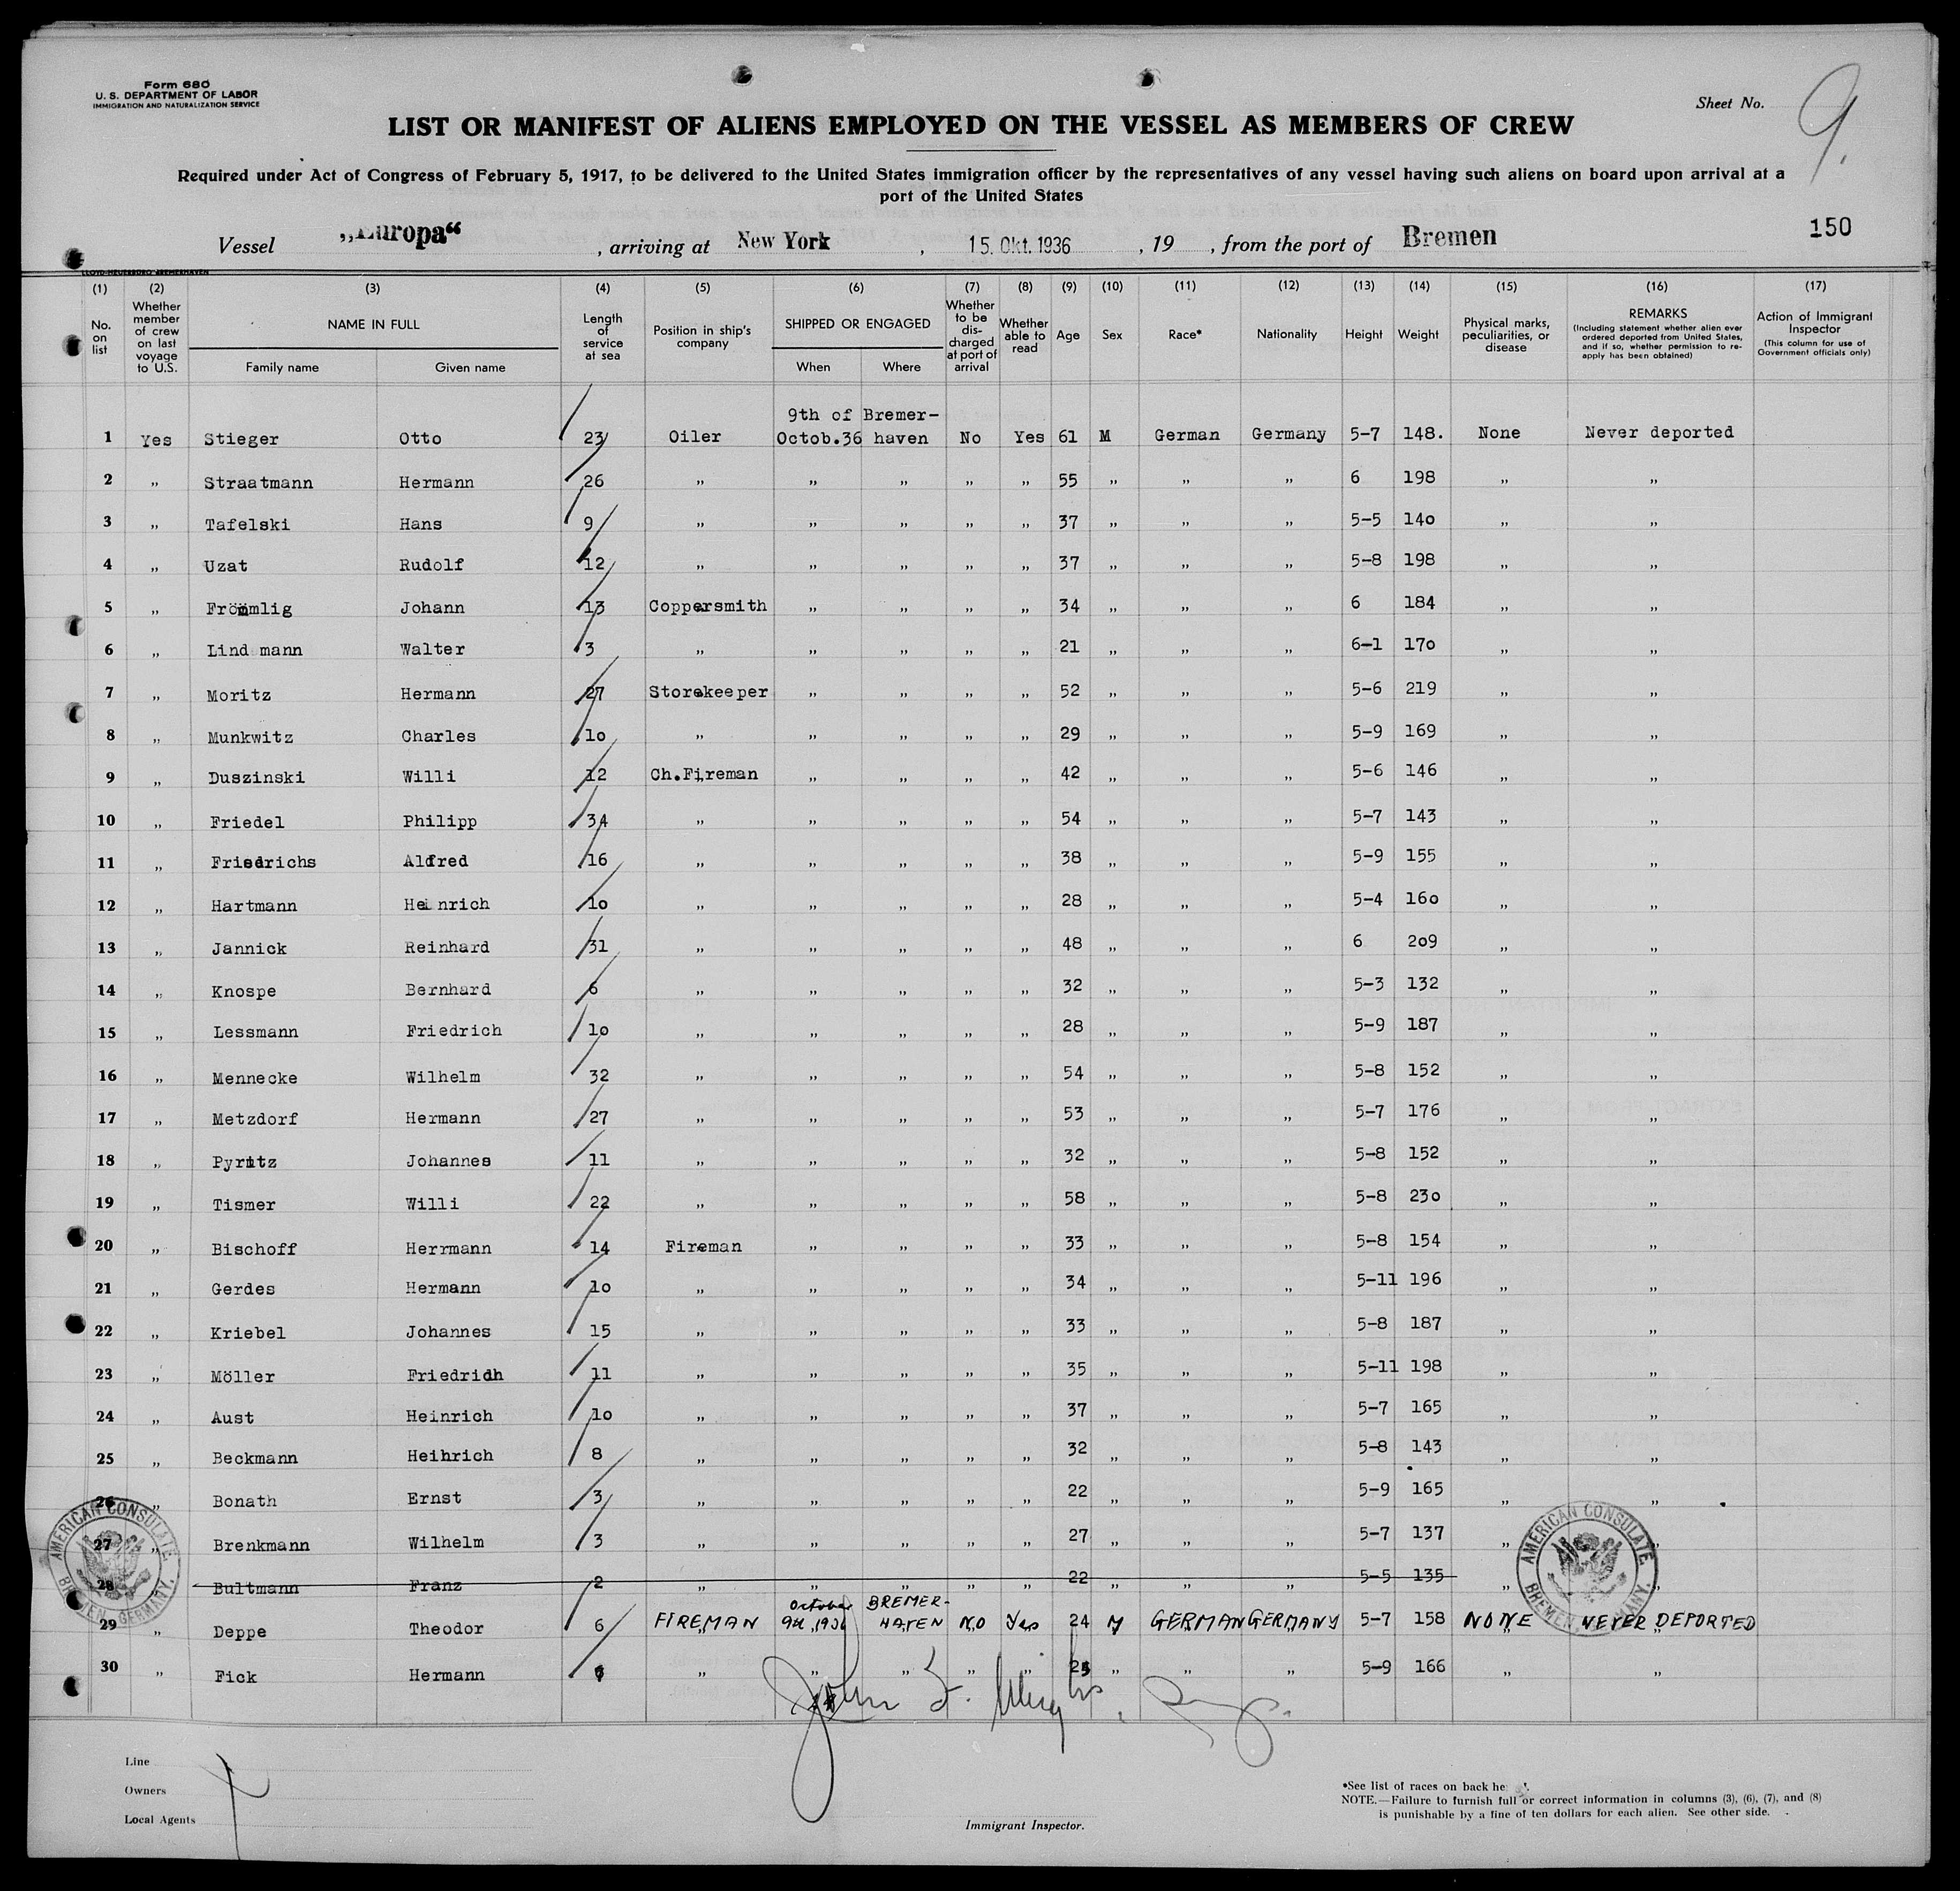 Form 680
U. S. DEPARTMENT OF LABOR
IMMIGRATION AND NATURALIZATION SERVICE
Sheet No. 9.
LIST OR MANIFEST OF ALIENS EMPLOYED ON THE VESSEL AS MEMBERS OF CREW
Required under Act of Congress of February 5, 1917, to be delivered to the United States immigration officer by the representatives of any vessel having such aliens on board upon arrival at a
port of the United States
Vessel „Europa“ , arriving at New York , 15. Okt. 1936 , 19 , from the port of Bremen 150
(1) (2) (3) (4) (5) (6) (7) (8) (9) (10) (11) (12) (13) (14) (15) (16) (17)
No. on list
Whether member of crew on last voyage to U.S.
NAME IN FULL
Family name Given name
Length of service at sea
Position in ship's company
SHIPPED OR ENGAGED
When Where
Whether to be discharged at port of arrival
Whether able to read
Age
Sex
Race*
Nationality
Height
Weight
Physical marks, peculiarities, or disease
REMARKS
(Including statement whether alien ever ordered deported from United States, and if so, whether permission to reapply has been obtained)
Action of Immigrant Inspector
(This column for use of Government officials only)
9th of Bremer-
1 Yes Stieger Otto 23 Oiler Octob.36 haven No Yes 61 M German Germany 5-7 148. None Never deported
2 „ Straatmann Hermann 26 „ „ „ „ „ 55 „ „ „ 6 198 „ „
3 „ Tafelski Hans 9 „ „ „ „ „ 37 „ „ „ 5-5 140 „ „
4 „ Uzat Rudolf 12 „ „ „ „ „ 37 „ „ „ 5-8 198 „ „
5 „ Frömmlig Johann 13 Coppersmith „ „ „ „ 34 „ „ „ 6 184 „ „
6 „ Lind mann Walter 3 „ „ „ „ „ 21 „ „ „ 6-1 170 „ „
7 „ Moritz Hermann 27 Storekeeper „ „ „ „ 52 „ „ „ 5-6 219 „ „
8 „ Munkwitz Charles 10 „ „ „ „ „ 29 „ „ „ 5-9 169 „ „
9 „ Duszinski Willi 12 Ch.Fireman „ „ „ „ 42 „ „ „ 5-6 146 „ „
10 „ Friedel Philipp 34 „ „ „ „ „ 54 „ „ „ 5-7 143 „ „
11 „ Friedrichs Alfred 16 „ „ „ „ „ 38 „ „ „ 5-9 155 „ „
12 „ Hartmann Heinrich 10 „ „ „ „ „ 28 „ „ „ 5-4 160 „ „
13 „ Jannick Reinhard 31 „ „ „ „ „ 48 „ „ „ 6 209 „ „
14 „ Knospe Bernhard 6 „ „ „ „ „ 32 „ „ „ 5-3 132 „ „
15 „ Lessmann Friedrich 10 „ „ „ „ „ 28 „ „ „ 5-9 187 „ „
16 „ Mennecke Wilhelm 32 „ „ „ „ „ 54 „ „ „ 5-8 152 „ „
17 „ Metzdorf Hermann 27 „ „ „ „ „ 53 „ „ „ 5-7 176 „ „
18 „ Pyritz Johannes 11 „ „ „ „ „ 32 „ „ „ 5-8 152 „ „
19 „ Tismer Willi 22 „ „ „ „ „ 58 „ „ „ 5-8 230 „ „
20 „ Bischoff Herrmann 14 Fireman „ „ „ „ 33 „ „ „ 5-8 154 „ „
21 „ Gerdes Hermann 10 „ „ „ „ „ 34 „ „ „ 5-11 196 „ „
22 „ Kriebel Johannes 15 „ „ „ „ „ 33 „ „ „ 5-8 187 „ „
23 „ Möller Friedridh 11 „ „ „ „ „ 35 „ „ „ 5-11 198 „ „
24 „ Aust Heinrich 10 „ „ „ „ „ 37 „ „ „ 5-7 165 „ „
25 „ Beckmann Heihrich 8 „ „ „ „ „ 32 „ „ „ 5-8 143 „ „
26 „ Bonath Ernst 3 „ „ „ „ „ 22 „ „ „ 5-9 165 „ „
27 „ Brenkmann Wilhelm 3 „ „ „ „ „ 27 „ „ „ 5-7 137 „ „
28 Bultmann Franz 2 „ „ „ „ „ 22 „ „ „ 5-5 135 „ „
October BREMER-
29 „ Deppe Theodor 6 FIREMAN 9th 1936 HAFEN NO Yes 24 M GERMAN GERMANY 5-7 158 NONE NEVER DEPORTED
30 „ Fick Hermann „ „ „ „ „ „ „ „ 5-9 166 „ „
AMERICAN CONSULATE
BREMEN, GERMANY.
AMERICAN CONSULATE
BREMEN, GERMANY.
Line
Owners
Local Agents
Immigrant Inspector.
*See list of races on back he
NOTE.—Failure to furnish full or correct information in columns (3), (6), (7), and (8)
is punishable by a fine of ten dollars for each alien. See other side.